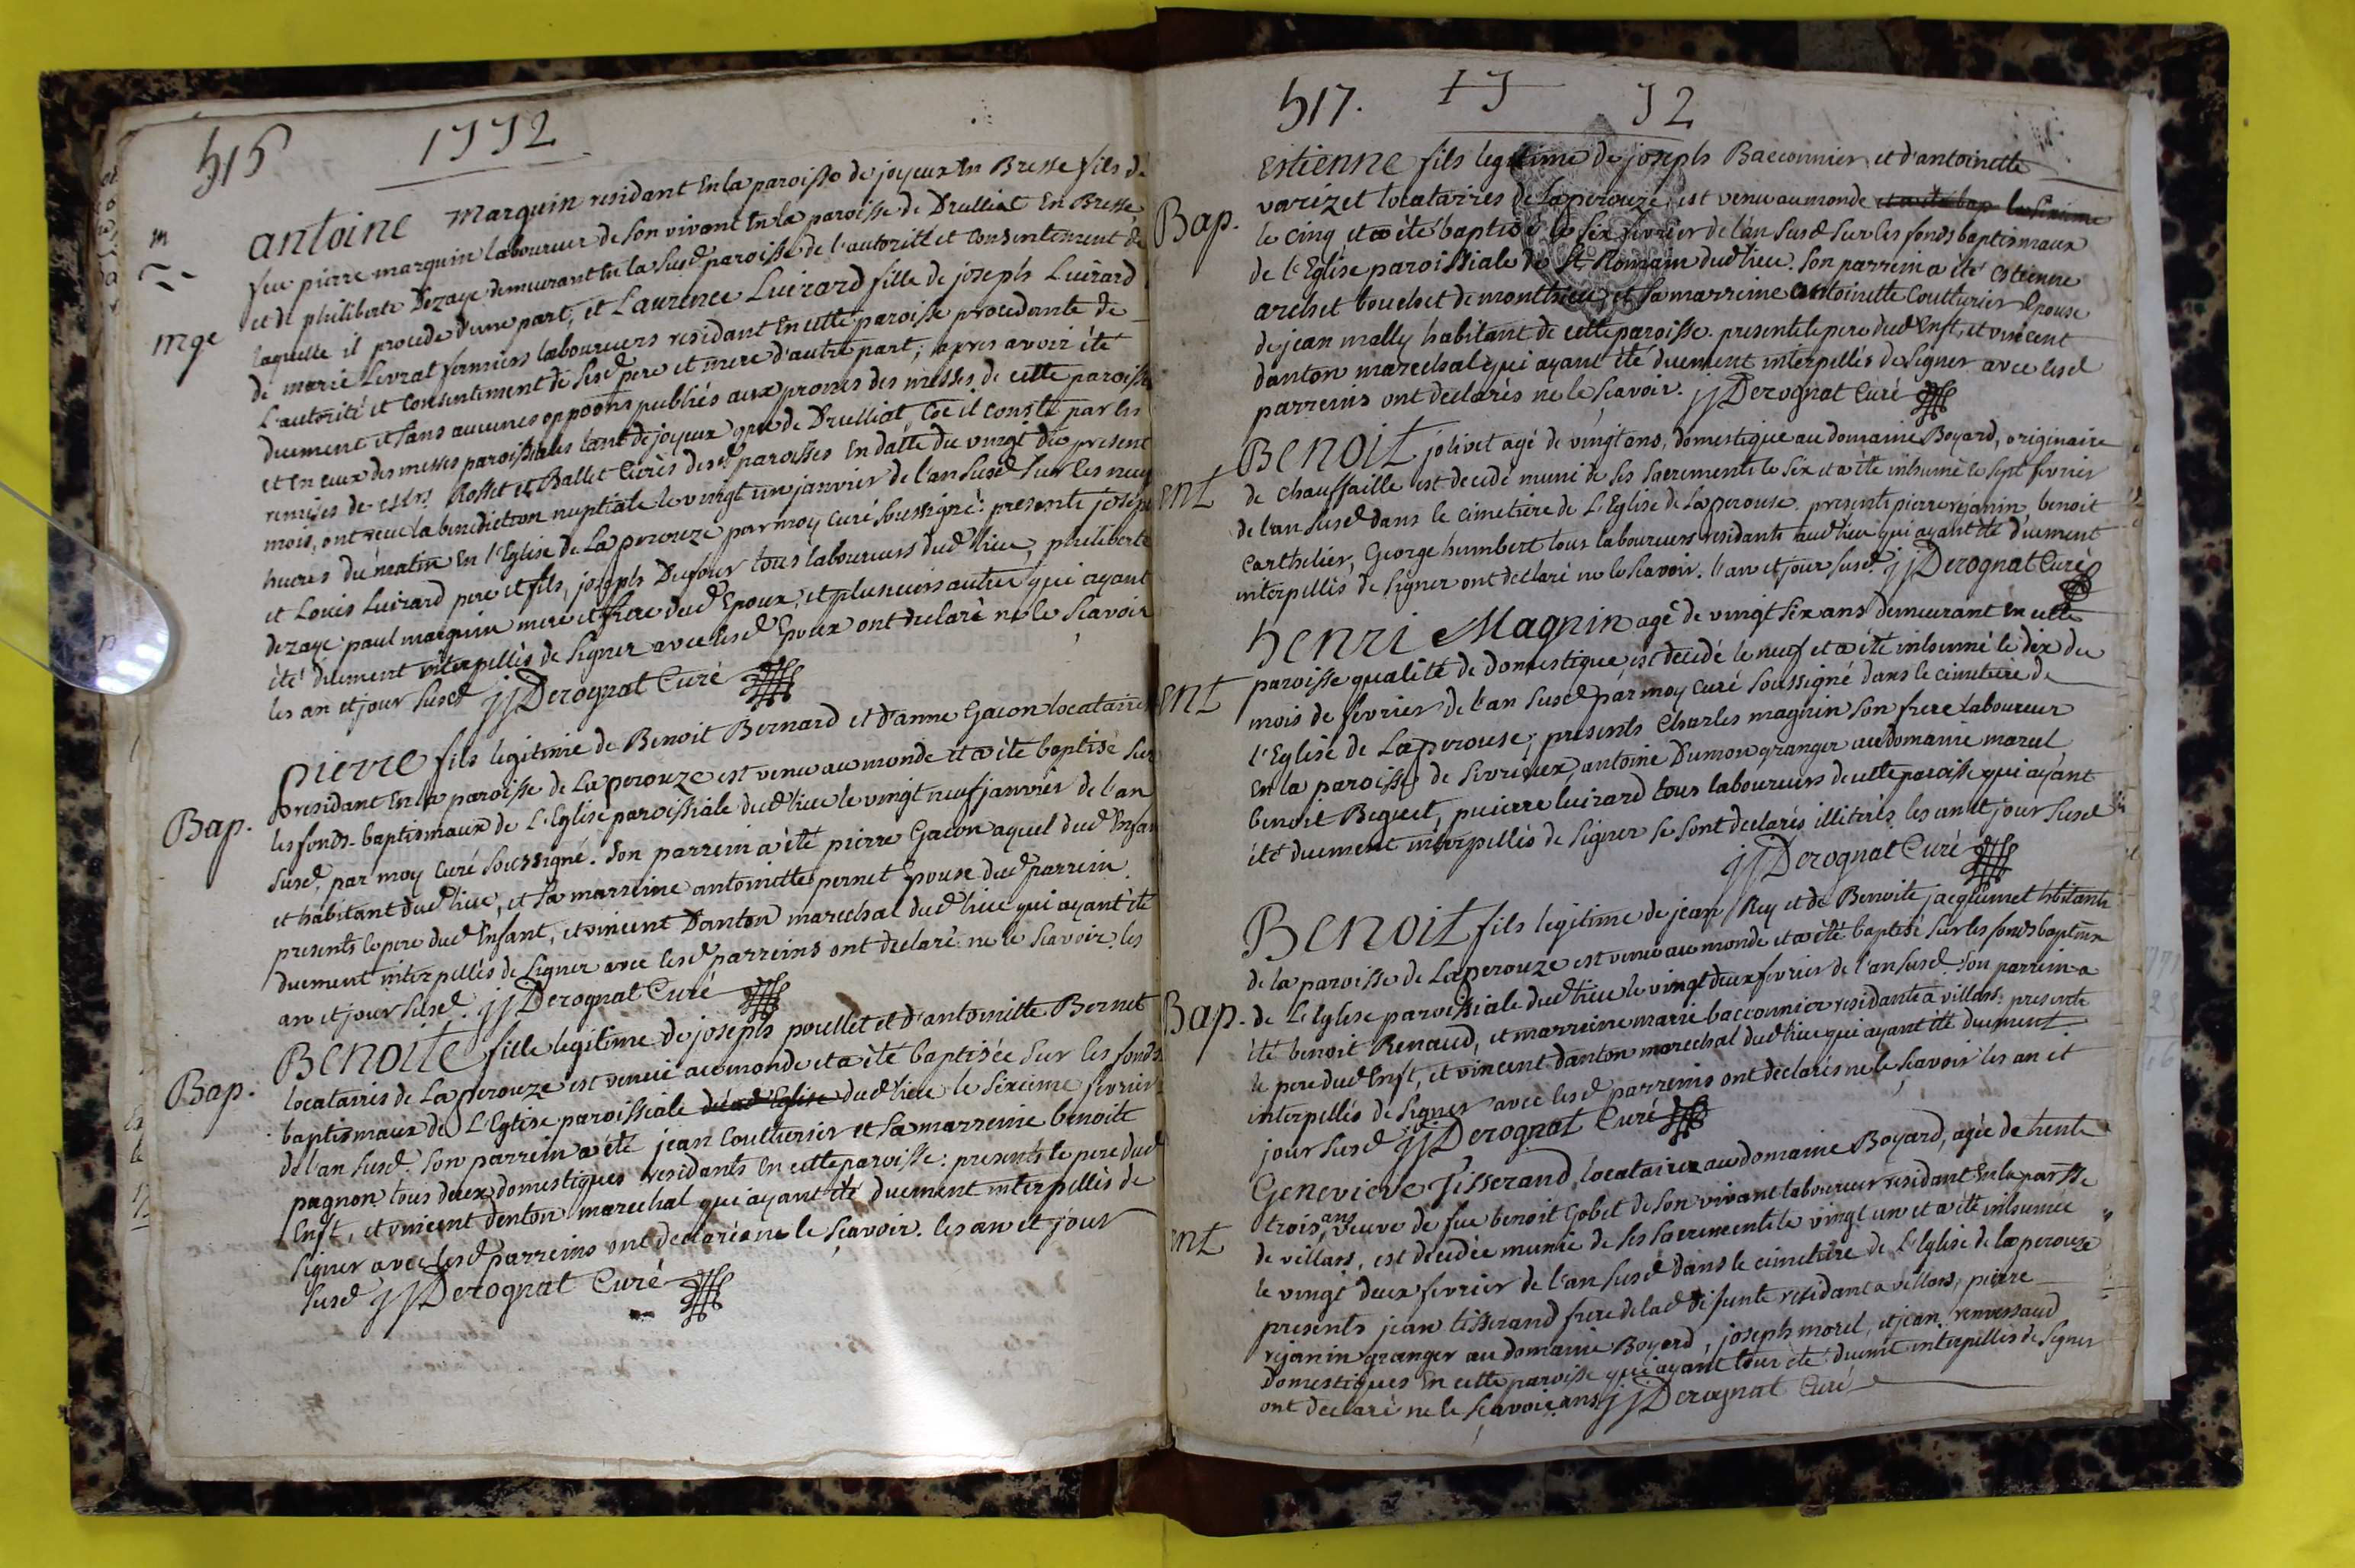 516
1772
m
mge
antoine marquin residant En la paroisse de joyeux En Bresse fils de
feu pierre marquin laboureur de son vivant En la paroisse de Drulliat En Bresse
et de philiberte Dezaye demeurant En la susd paroisse de l'autorité et consentement de
laquelle il procede d'une part, et Laurence Luirard fille de joseph Luirard
de marie Levrat fermiers laboureurs residant En cette paroisse procedante de
L'autorité et consentement de sesd pere et mere d'autre part; apres avoir été
duement et sans aucunes oppoons publiés aux prones des messes de cette paroisse
et En ceux des messes paroissiales tant de joyeux que de Drulliat, Coe il conste par les
remises de Rosset et Ballet Curés desd paroisses En datte du vingt du present
mois, ont reçue la benediction nuptiale le vingt un janvier de l'an susd sur les neuf
heures du matin En l'Eglise de La perouze par moy Curé soussigné: presents joseph
et Louis Luirard pere et fils, joseph Dufour tous laboureurs dud lieu, philiberte
dezaye paul marquin mere et frere dud Epoux, et plusieurs autres qui ayant
été duement interpellés de signer avec lesd Epoux ont declaré ne le scavoir
les an et jour susd jj Derognat Curé
Bap.
pierre fils legitime de Benoit Bernard et d'anne Gacon locataires
residant En la paroisse de La perouze est venu au monde et a été baptisé sur
les fonds-baptismaux de L'Eglise paroissiale dud lieu le vingt neuf janvier de l'an
susd, par moy Curé soussigné. Son parrein a été pierre Gacon ayeul dud Enfant
et habitant dud lieu, et sa marreine antoinette pernet Epouse dud parrein.
presents le pere dud Enfant, et vincent Danton marechal dud lieu qui ayant été
duement interpellés de signer avec lesd parreins ont declaré ne le scavoir. les
an et jour susd. jj Derognat Curé
Bap.
Benoite fille legitime de joseph poullet et d'antoinette Bernet
locataires de La perouze est venue au monde et a été baptisée sur les fonds
baptismaux de L'Eglise paroissiale de lad Eglise dud lieu le sixieme fevrier
de l'an susd. Son parrein a été jean Coutturier et sa marreine benoite
pagnon tous deux domestiques residants En cette paroisse: presents le pere dud
Enft, et vincent Denton marechal qui ayant été duement interpellés de
signer avec lesd parreins ont declarés ne le sçavoir. les an et jour
susd jj Derognat Curé
517. 17 72
Bap.
Estienne fils legitime de joseph Baeconnier et d'antoinette
varizet locataires de La perouze, est venu au monde et a été bap le sixieme
le cinq et a été baptisé le six fevrier de l'an susd sur les fonds baptismaux
de l'Eglise paroissiale de St Romain dud lieu. Son parrein a été estienne
archet bouchet de monthieu, et sa marreine antoinette Coutturier Epouse
de jean mally habitant de cette paroisse. presents le pere dud Enft, et vincent
danton marechal qui ayant été duement interpellés de signer avec lesd
parreins ont declarés ne le scavoir. jj Derognat Curé
ent
Benoit jolivet agé de vingt ans, domestique au domaine Boyard, originaire
de chauffaille est decedé muni de ses sacrements le six et a été inhumé le sept fevrier
de l'an susd dans le cimetiere de L'Eglise de La perouse. presents pierre rejanin, benoit
Carthelier, George humbert tous laboureurs residants aud lieu qui ayant été duement
interpellés de signer ont declaré ne le scavoir. l'an et jour susd. jj Derognat Curé
ent
henri Magnin agé de vingt six ans demeurant En cette
paroisse qualité de domestique est decedé le neuf et a été inhumé le dix du
mois de fevrier de l'an susd par moy Curé soussigné dans le cimetiere de
l'Eglise de La perouse; presents Charles magnin son frere laboureur
En la paroisse de sivrieux, antoine Dumon granger au domaine marcel
benoit Bequet, pueirre luirard tous laboureurs de cette paroisse qui ayant
été duement interpellés de signer se sont declarés illiterés les an et jour susd
jj Derognat Curé
Bap.
Benoit fils legitime de jean Rey et de Benoite jacquemet hbitants
de la paroisse de La perouze est venu au monde et a été baptisé sur les fonds baptism
de L'Eglise paroissiale dud lieu le vingt deux fevrier de l'an susd. Son parrein a
été benoit Renaud, et marreine marie bacconnier residante a villars: presents
le pere dud Enft, et vincent danton marechal dud lieu qui ayant été duement
interpellés de signer avec lesd parreins ont declarés ne le scavoir les an et
jour susd jj Derognat Curé
ent
Genevieve Tisserand, locataire au domaine Boyard, agée de trente
trois ans, veuve de feu benoit Gobet de son vivant laboureur residant En la parsse
de villars, est decedée munie de ses sacrements le vingt un et a été inhumée
le vingt deux fevrier de l'an susd dans le cimetiere de L'Eglise de la perouze
presents jean tisserand frere de lad defunte residant a villars, pierre
rejanin granger au domaine Boyard, joseph morel, et jean renvessaud
domestiques En cette paroisse qui ayant tous été duemt interpellés de signer
ont declaré ne le scavoir jj Derognat Curé